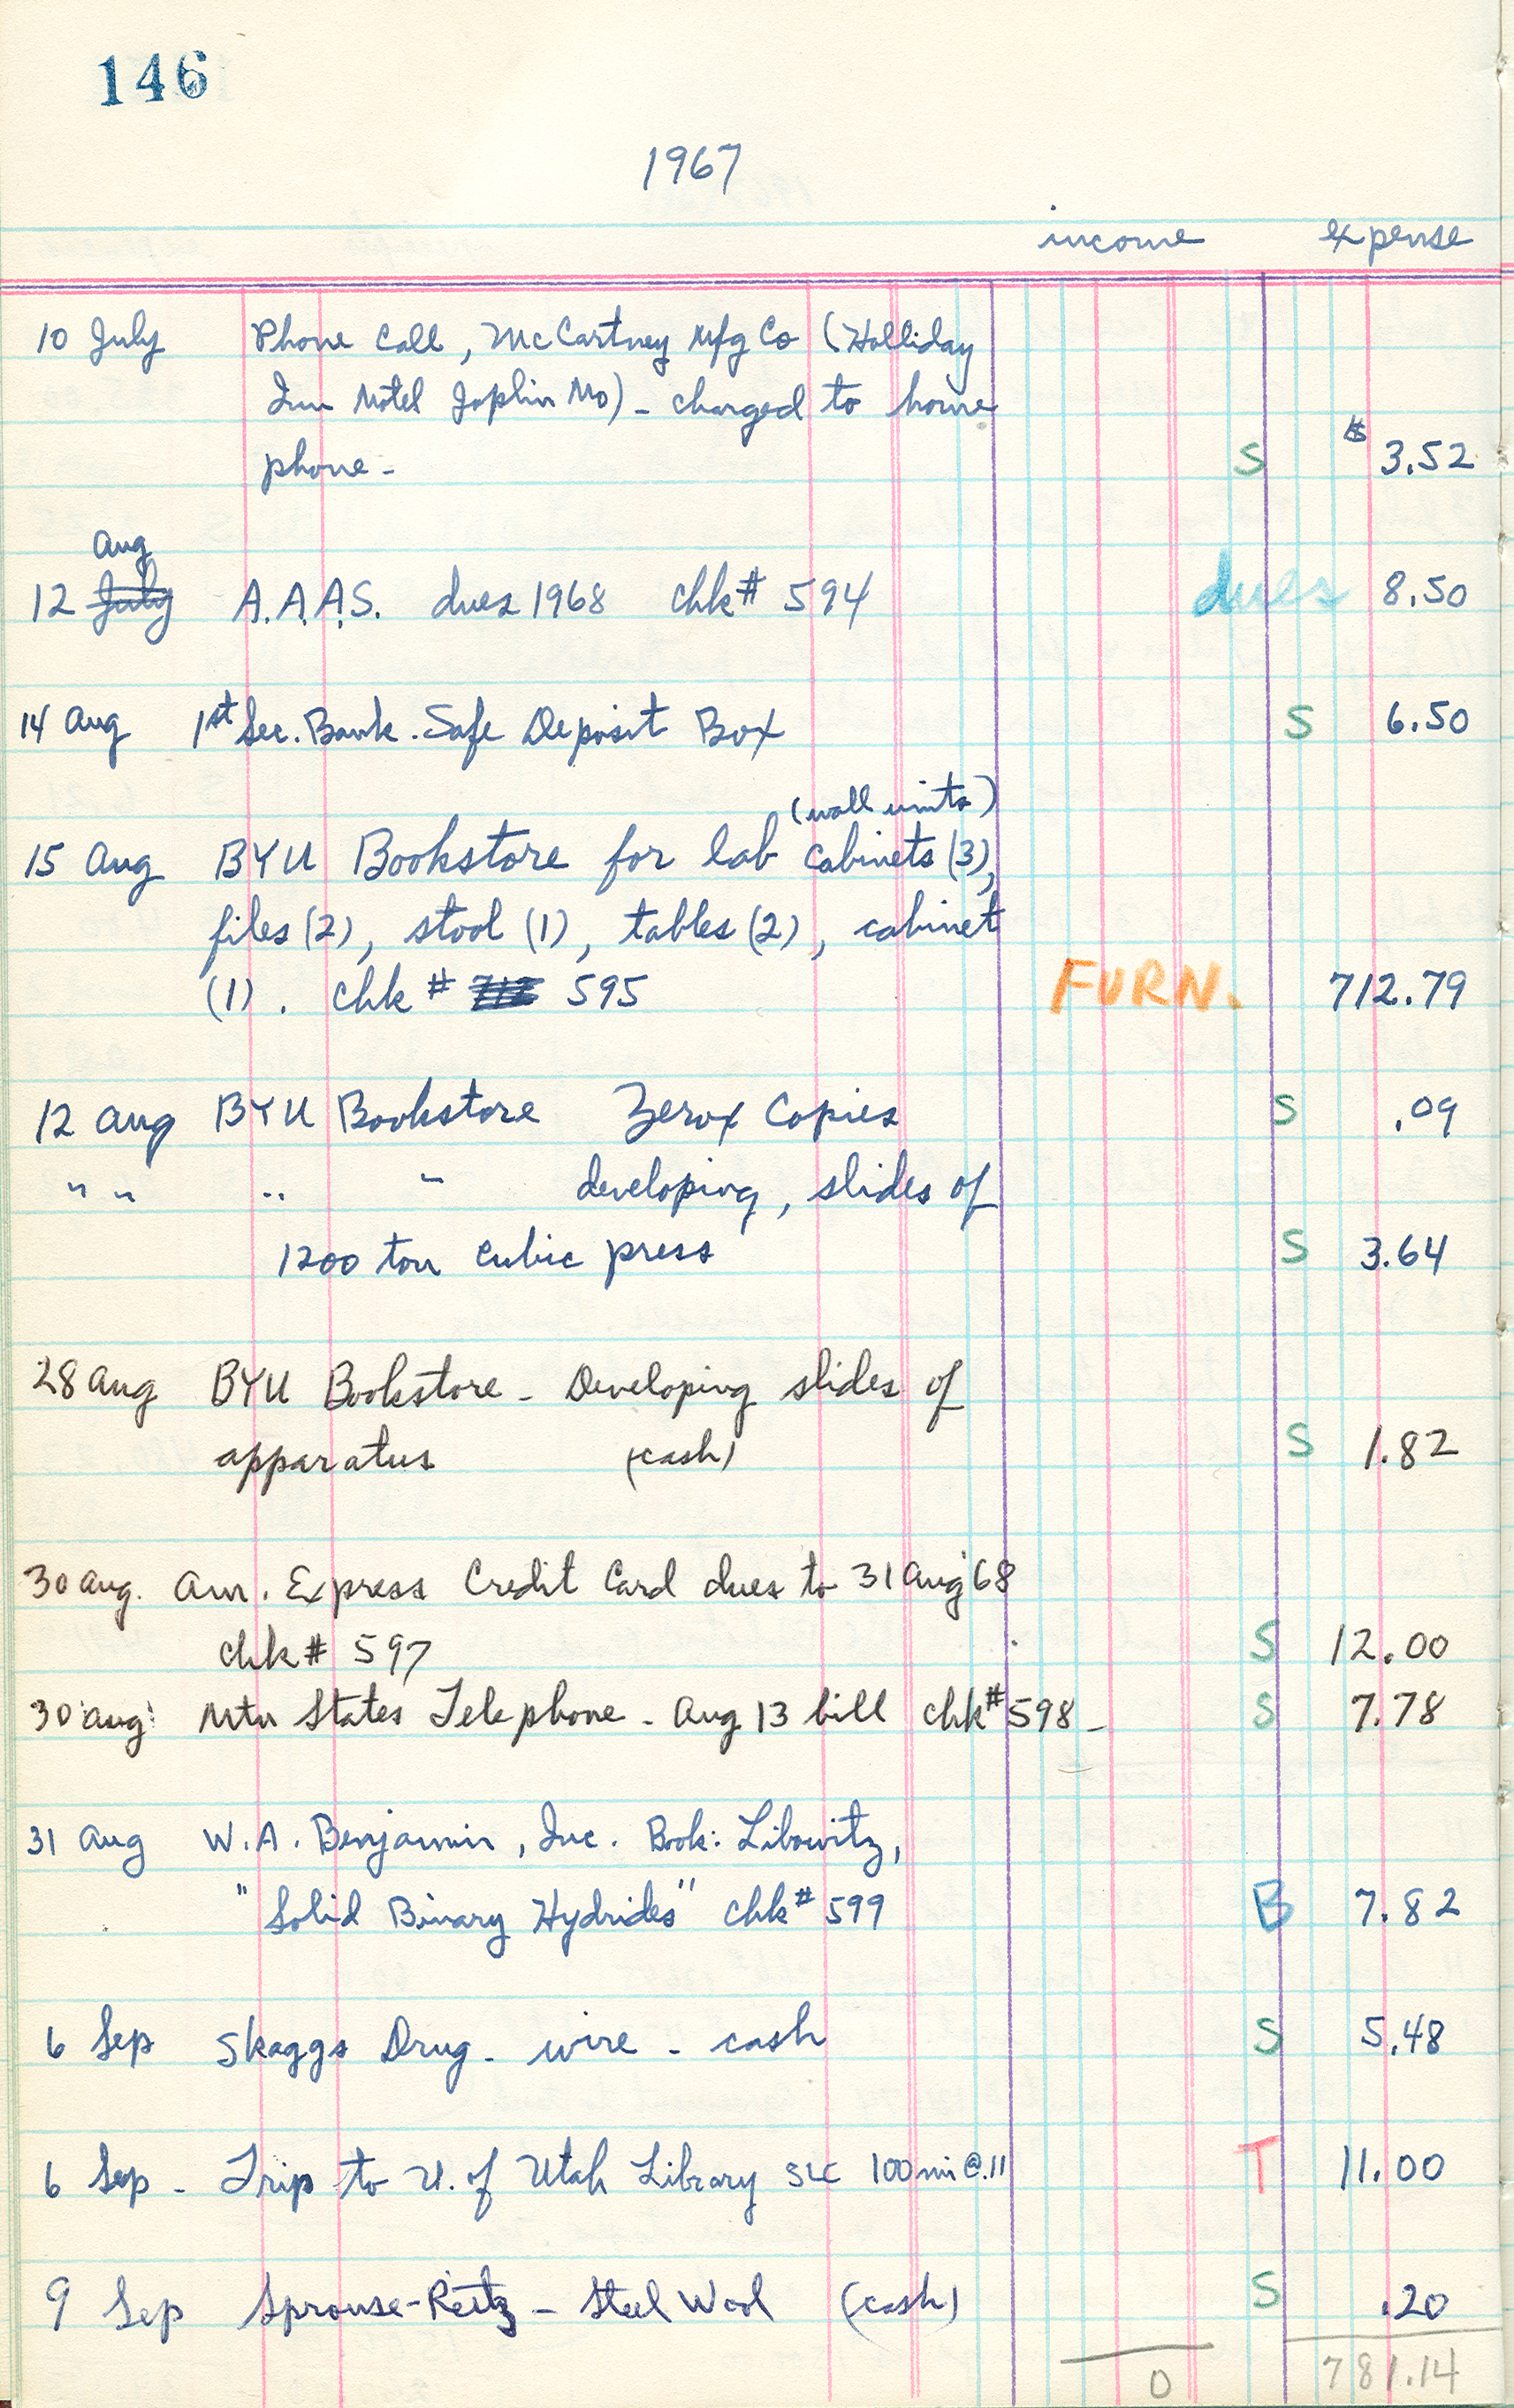 146
1967
income expense
10 July Phone Call, McCartney Mfg Co (Holliday
Inn Motel Joplin Mo) - charged to home
phone - S $ 3.52
Aug
12 July A.A.A.S. dues 1968 chk# 594 dues 8.50
14 Aug 1st Sec. Bank. Safe Deposit Box S 6.50
(wall units)
15 Aug BYU Bookstore for lab cabinets (3),
files (2), stool (1), tables (2), cabinet
(1). chk # 595 FURN. 712.79
12 Aug BYU Bookstore Zerox Copies S .09
" " " " developing, slides of
1200 ton cubic press S 3.64
28 Aug BYU Bookstore - Developing slides of
apparatus (cash) S 1.82
30 Aug. Am. Express Credit Card dues to 31 Aug '68
chk# 597 S 12.00
30 Aug Mtn States Telephone - Aug 13 bill chk# 598 - S 7.78
31 Aug W.A. Benjamin, Inc. Book: Libowitz,
"Solid Binary Hydrides" chk# 599 B 7.82
6 Sep Skaggs Drug - wire - cash S 5.48
6 Sep - Trip to U. of Utah Library SLC 100 mi @ .11 T 11.00
9 Sep Sprouse-Reitz - Steel Wool (cash) S .20
0 781.14